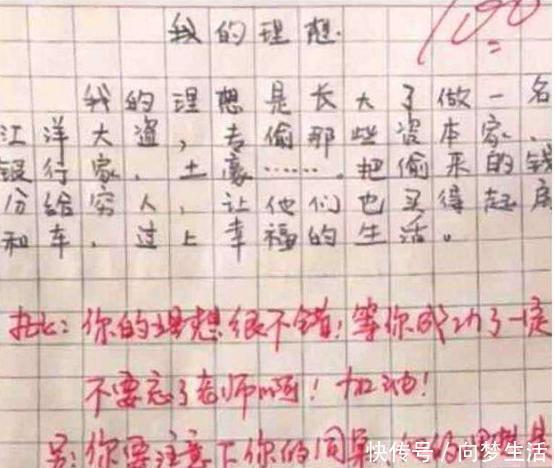 我的理想
100
我的理想是长大了做一名
江洋大盗，专偷那些资本家、
银行家、土豪……，把偷来的钱
分给穷人，让他们也买得起房
和车，过上幸福的生活。
批：你的理想很不错！等你成功了一定
不要忘了老师啊！加油！
另：你要注意下你的同桌，
快传号/向梦生活